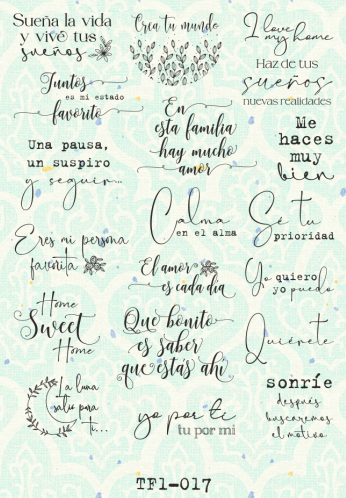 Sueña la vida
y vive tus
sueños
Crea tu mundo
I love
my home
Juntos
es mi estado
favorito
Haz de tus
sueños
nuevas realidades
En
esta familia
hay mucho
amor
Me
haces
muy
bien
Una pausa,
un suspiro
y seguir...
Calma
en el alma
Sé tu
prioridad
Eres mi persona
favorita
El amor
es cada día
Yo quiero
yo puedo
Home
Sweet
Home
Que bonito
es saber
que estás ahí
Quiérete
La luna
salió para
ti...
yo por ti
tu por mi
sonríe
después
buscaremos
el motivo
TF1-017